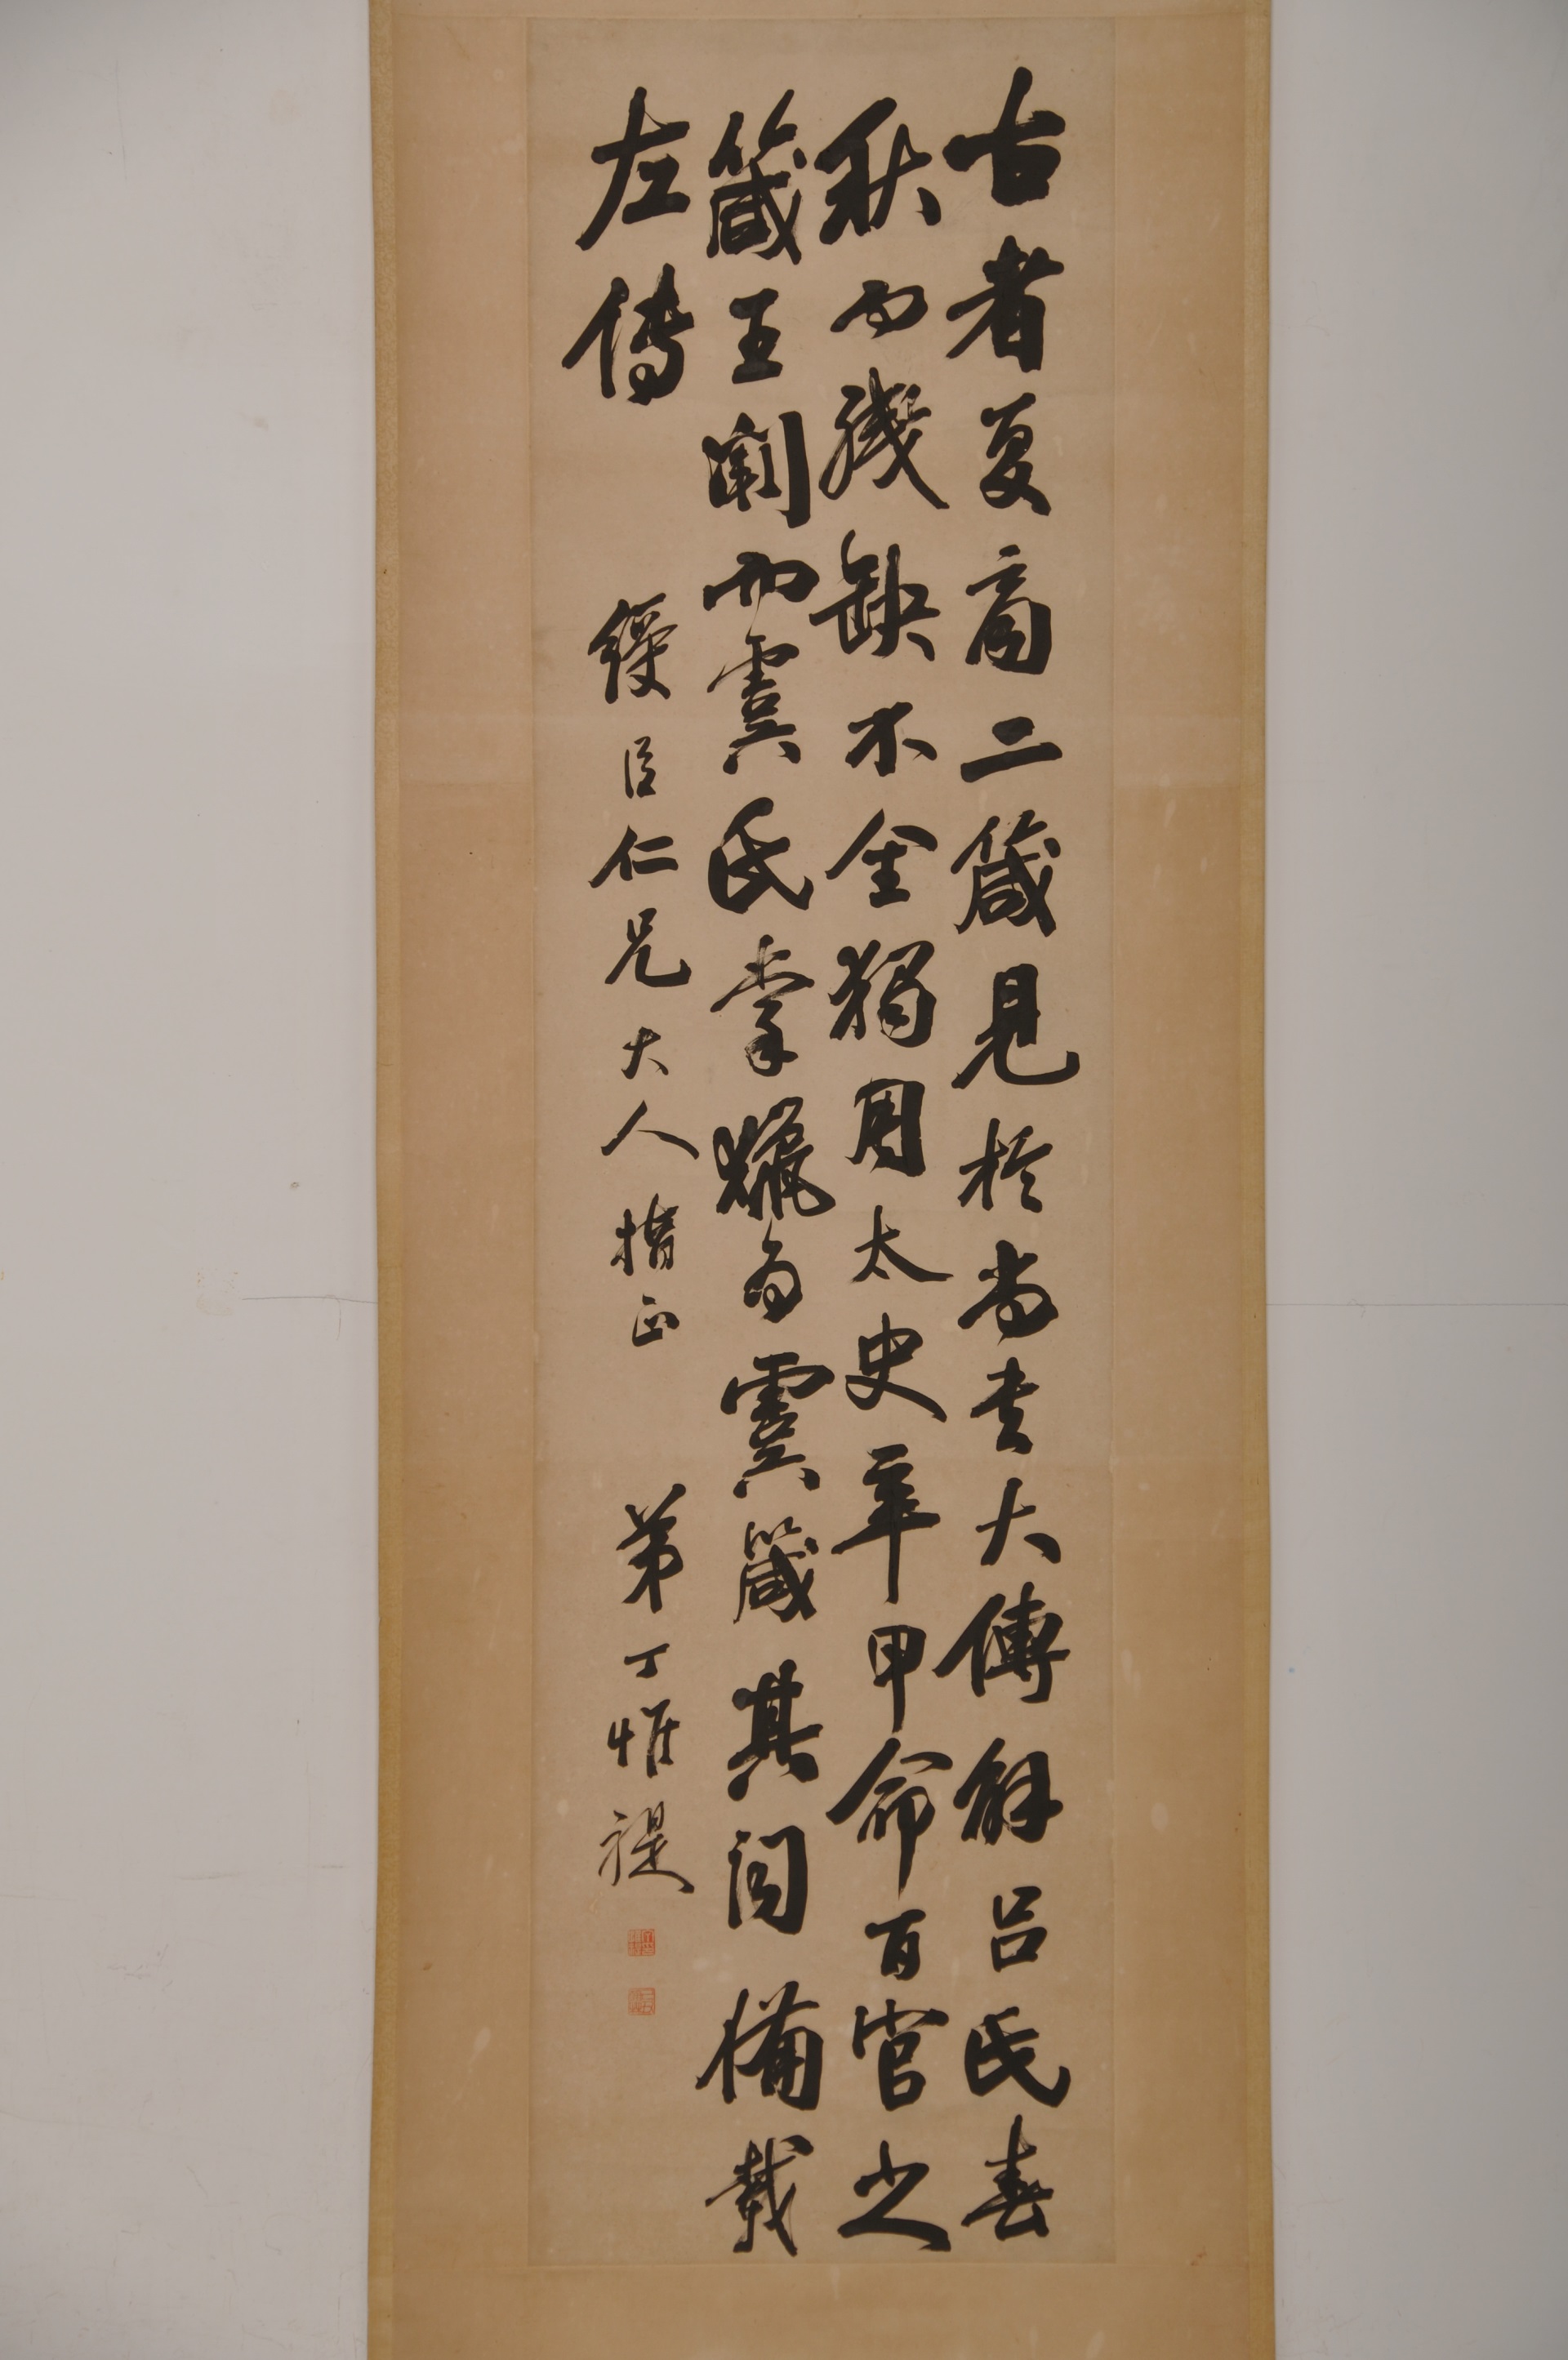 古者夏商二箴見於尚書大傳解呂氏春
秋而殘缺不全獨周太史辛甲命百官之
箴王闕而虞氏掌獵為虞箴其詞備載
左傳
綬臣仁兄大人指正
弟丁惟禔